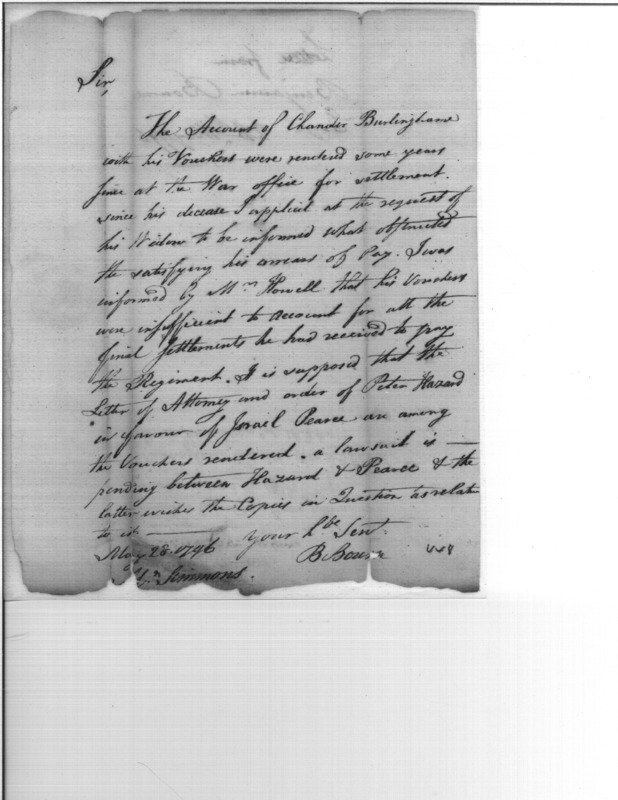 Sir,
The Account of Chandler Burlinghame
with his Vouchers were rendered some years
since at the War office for settlement.
since his decease I applied at the request of
his Widow to be informed what obstructed
the satisfying his arrears of Pay. I was
informed by Mr. Howell that his Vouchers
were insufficient to account for all the
final Settlements he had received to pay
the Regiment. It is supposed that the
Letter of Attorney and order of Peter Hazard
in favour of Israel Pearce are among
the Vouchers rendered. a lawsuit is —
pending between Hazard & Pearce & the
latter wishes the Copies in Question as relate
to it.
Your Hbe Sert.
May 28. 1796
B Bourne
Mr. Simmons.
Letter from
Benjamin Bourne